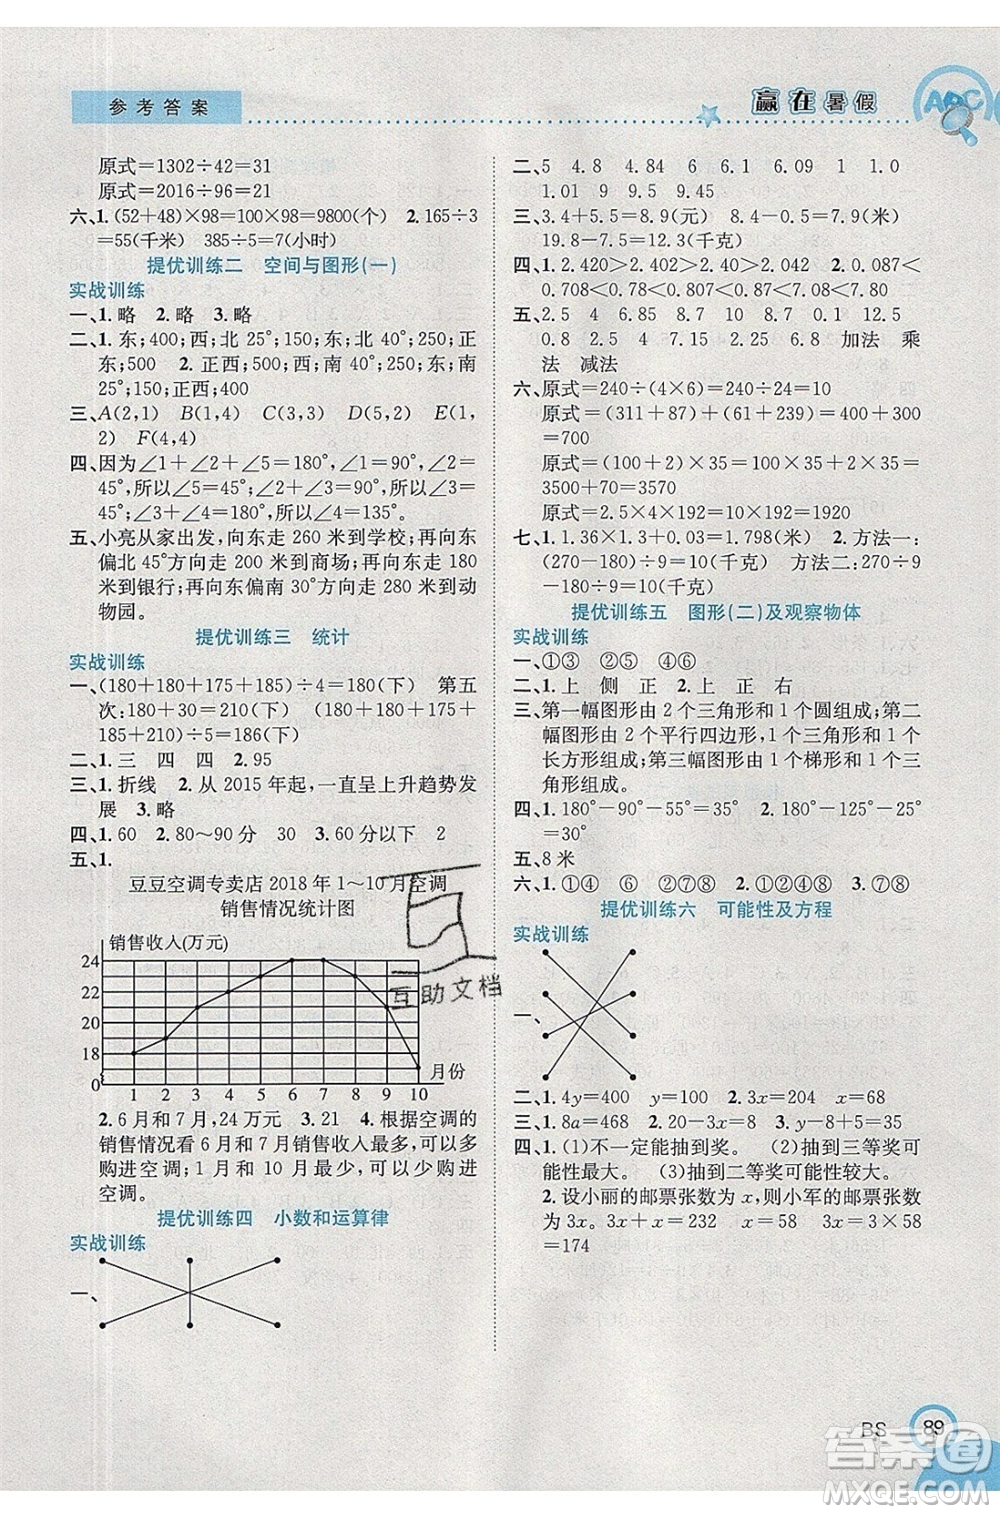 参考答案
赢在暑假
ABC
原式=1302÷42=31
原式=2016÷96=21
六、1.(52+48)×98=100×98=9800(个) 2.165÷3
=55(千米) 385÷5=7(小时)
提优训练二 空间与图形(一)
实战训练
一、1.略 2.略 3.略
二、1.东;400;西;北 25°;150;东;北 40°;250;正
东;500 2.正西;500;西;南 40°;250;东;南
25°;150;正西;400
三、A(2,1) B(5,2) C(3,3) D(5,4) E(1,
2) F(4,4)
四、因为∠1+∠2+∠5=180°,∠1=90°,∠2=
45°,所以∠5=45°;∠2+∠3=180°,∠2=
45°,所以∠3=135°;∠4=90°。
五、小亮从家出发,向东走 260 米到学校;再向东
偏北 45°方向走 200 米到商场;再向东走 180
米到银行;再向东偏南 30°方向走 280 米到动
物园。
提优训练三 统计
实战训练
一、(180+180+175+185)÷4=180(下) 第五
次:180+30=210(下) (180+180+175+
185+210)÷5=186(下)
二、1.三 四 四 2.95
三、1.折线 2.从 2015 年起,一直呈上升趋势发
展 3.略
四、1.60 2.80~90 分 30 3.60 分以下 2
五、1.
豆豆空调专卖店 2018 年 1~10 月空调
销售情况统计图
销售收入(万元)
24
22
20
18
0
1 2 3 4 5 6 7 8 9 10
月份
2.6 月和 7 月,24 万元 3.21 4.根据空调的
销售情况看 6 月和 7 月销售收入最多,可以多
购进空调;1 月和 10 月最少,可以少购进
空调。
提优训练四 小数和运算律
实战训练
一、
二、5 4.8 4.84 6 6.1 6.09 1 1
1.01 9 9.5 9.45
三、3.4+5.5=8.9(元) 8.9-7.4=1.5(米)
19.8-7.5=12.3(千克)
四、1.2.420>2.402>2.204>2.042 2.0.087<
0.708<0.78<0.807<0.87
五、2.5 4 6.85 8.7 10 0.1 8.7
0.8 2.4 7.4 7.5 12 0.32 加法 乘
法 减法
六、原式=240÷(4×6)=240÷24=10
原式=(311+87)+(61+239)=400+300
=700
原式=(100+2)×35=100×35+2×35=
3500+70=3570
原式=2.5×4×192=10×192=1920
七、1.1.36×1.3+0.03=1.798(米) 2.方法一:
(270-180)÷9=10(千克) 方法二:270÷9
-180÷9=10(千克)
提优训练五 图形(二)及观察物体
实战训练
一、①③ ②⑤ ④⑥
二、1.上 侧 正 2.上 正 右
三、第一幅图形由 2 个三角形和 1 个圆组成;第二
幅图形由 2 个平行四边形,1 个三角形和 1 个
长方形组成;第三幅图形由 1 个圆和 1 个三
角形组成。
四、1.180°-90°-55°=35° 2.180°-125°-25°
=30°
五、8 米
六、1.①④⑥ ②⑤ ③⑦⑧ 2.③⑦ 3.②⑤⑧
提优训练六 可能性及方程
实战训练
一、
二、1.4y=400 y=100 2.3x=204 x=68
三、1.8a=468 2.20-3x=8 3.y-8+5=35
四、1.(1)不一定能抽到奖。 (2)抽到三等奖可
能性最大。 (3)抽到二等奖可能性较大。
2.设小丽的邮票张数为 x,则小军的邮票张数
为 3x。3x+x=232 x=58 3x=3×58
=174
互助文档
BS
89
答案圈